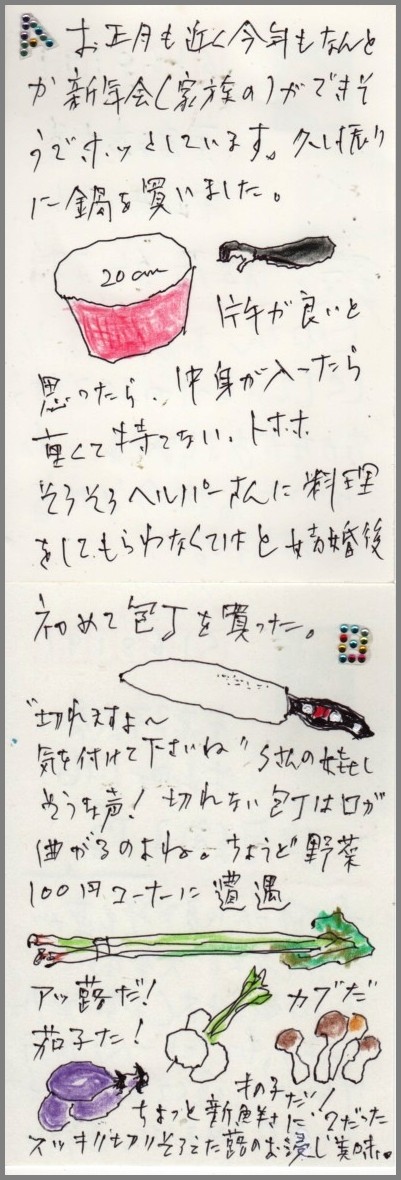 A
お正月も近く今年もなんと
か新年会(家族の)ができそ
うでホッとしています。久し振り
に鍋を買いました。
20cm
片手が良いと
思ったら、中身が入ったら
重くて持てない。トホホ
そろそろヘルパーさんに料理
をしてもらわなくてはと結婚後
初めて包丁を買った。
B
"切れますよ〜
気を付けて下さいね"Sさんの嬉し
そうな声!切れない包丁は口が
曲がるのよね。ちょうど野菜
100円コーナーに遭遇
アッ蕗だ!
カブだ
茄子だ!
木の子だ!
ちょっと新鮮さに?だった
スッキリ切りそろえた蕗のお浸し美味。